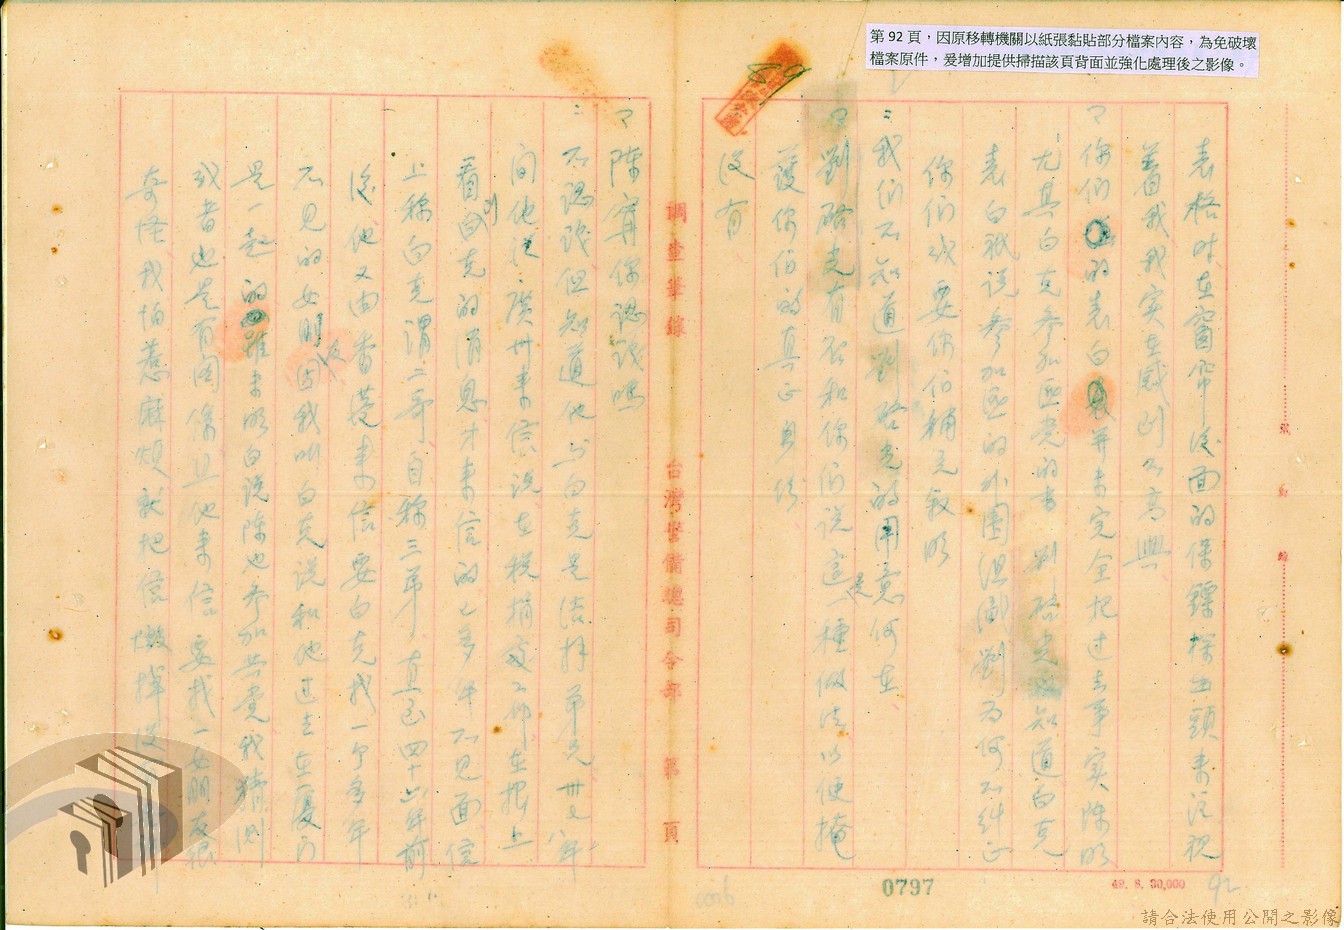 第92頁，因原移轉機關以紙張黏貼部分檔案內容，為免破壞
檔案原件，爰增加提供掃描該頁背面並強化處理後之影像。
89
表格時在窗帘後面的保鏢探出頭來注視
著我我實在感到不高興
？你們的表白並未完全把过去事实陈明
尤其白克参加匪党的事刘啓光知道白克
表白祇說参加匪的外圍組織劉为何不糾正
你们或要你们補充叙明
：我们不知道刘啓光的用意何在
？劉啓光有否和你们說這是一種做法以便掩
護你们的真正身份
没有
調查筆錄 台灣警備總司令部 第 頁
？陳寗你認識嗎
：不認識但知道他与白克是結拜弟兄卅七八年
间他從廣州来信説在稅捐處工作在报上
看到白克的消息才来信的七多年不見面信
上称白克謂二哥自称三弟直至四十六年前
後他又由香港来信要白克找一个多年
不見的女朋友因我叫白克説和他过去在厦门
是一起的雖未明白説陳也参加共党我猜测
或者也是有関係且他来信要找一女朋友很
奇怪我怕惹麻煩就把信撕掉没
0797
0096
49. 8. 30,000
92
張
動
給
請合法使用公開之影像